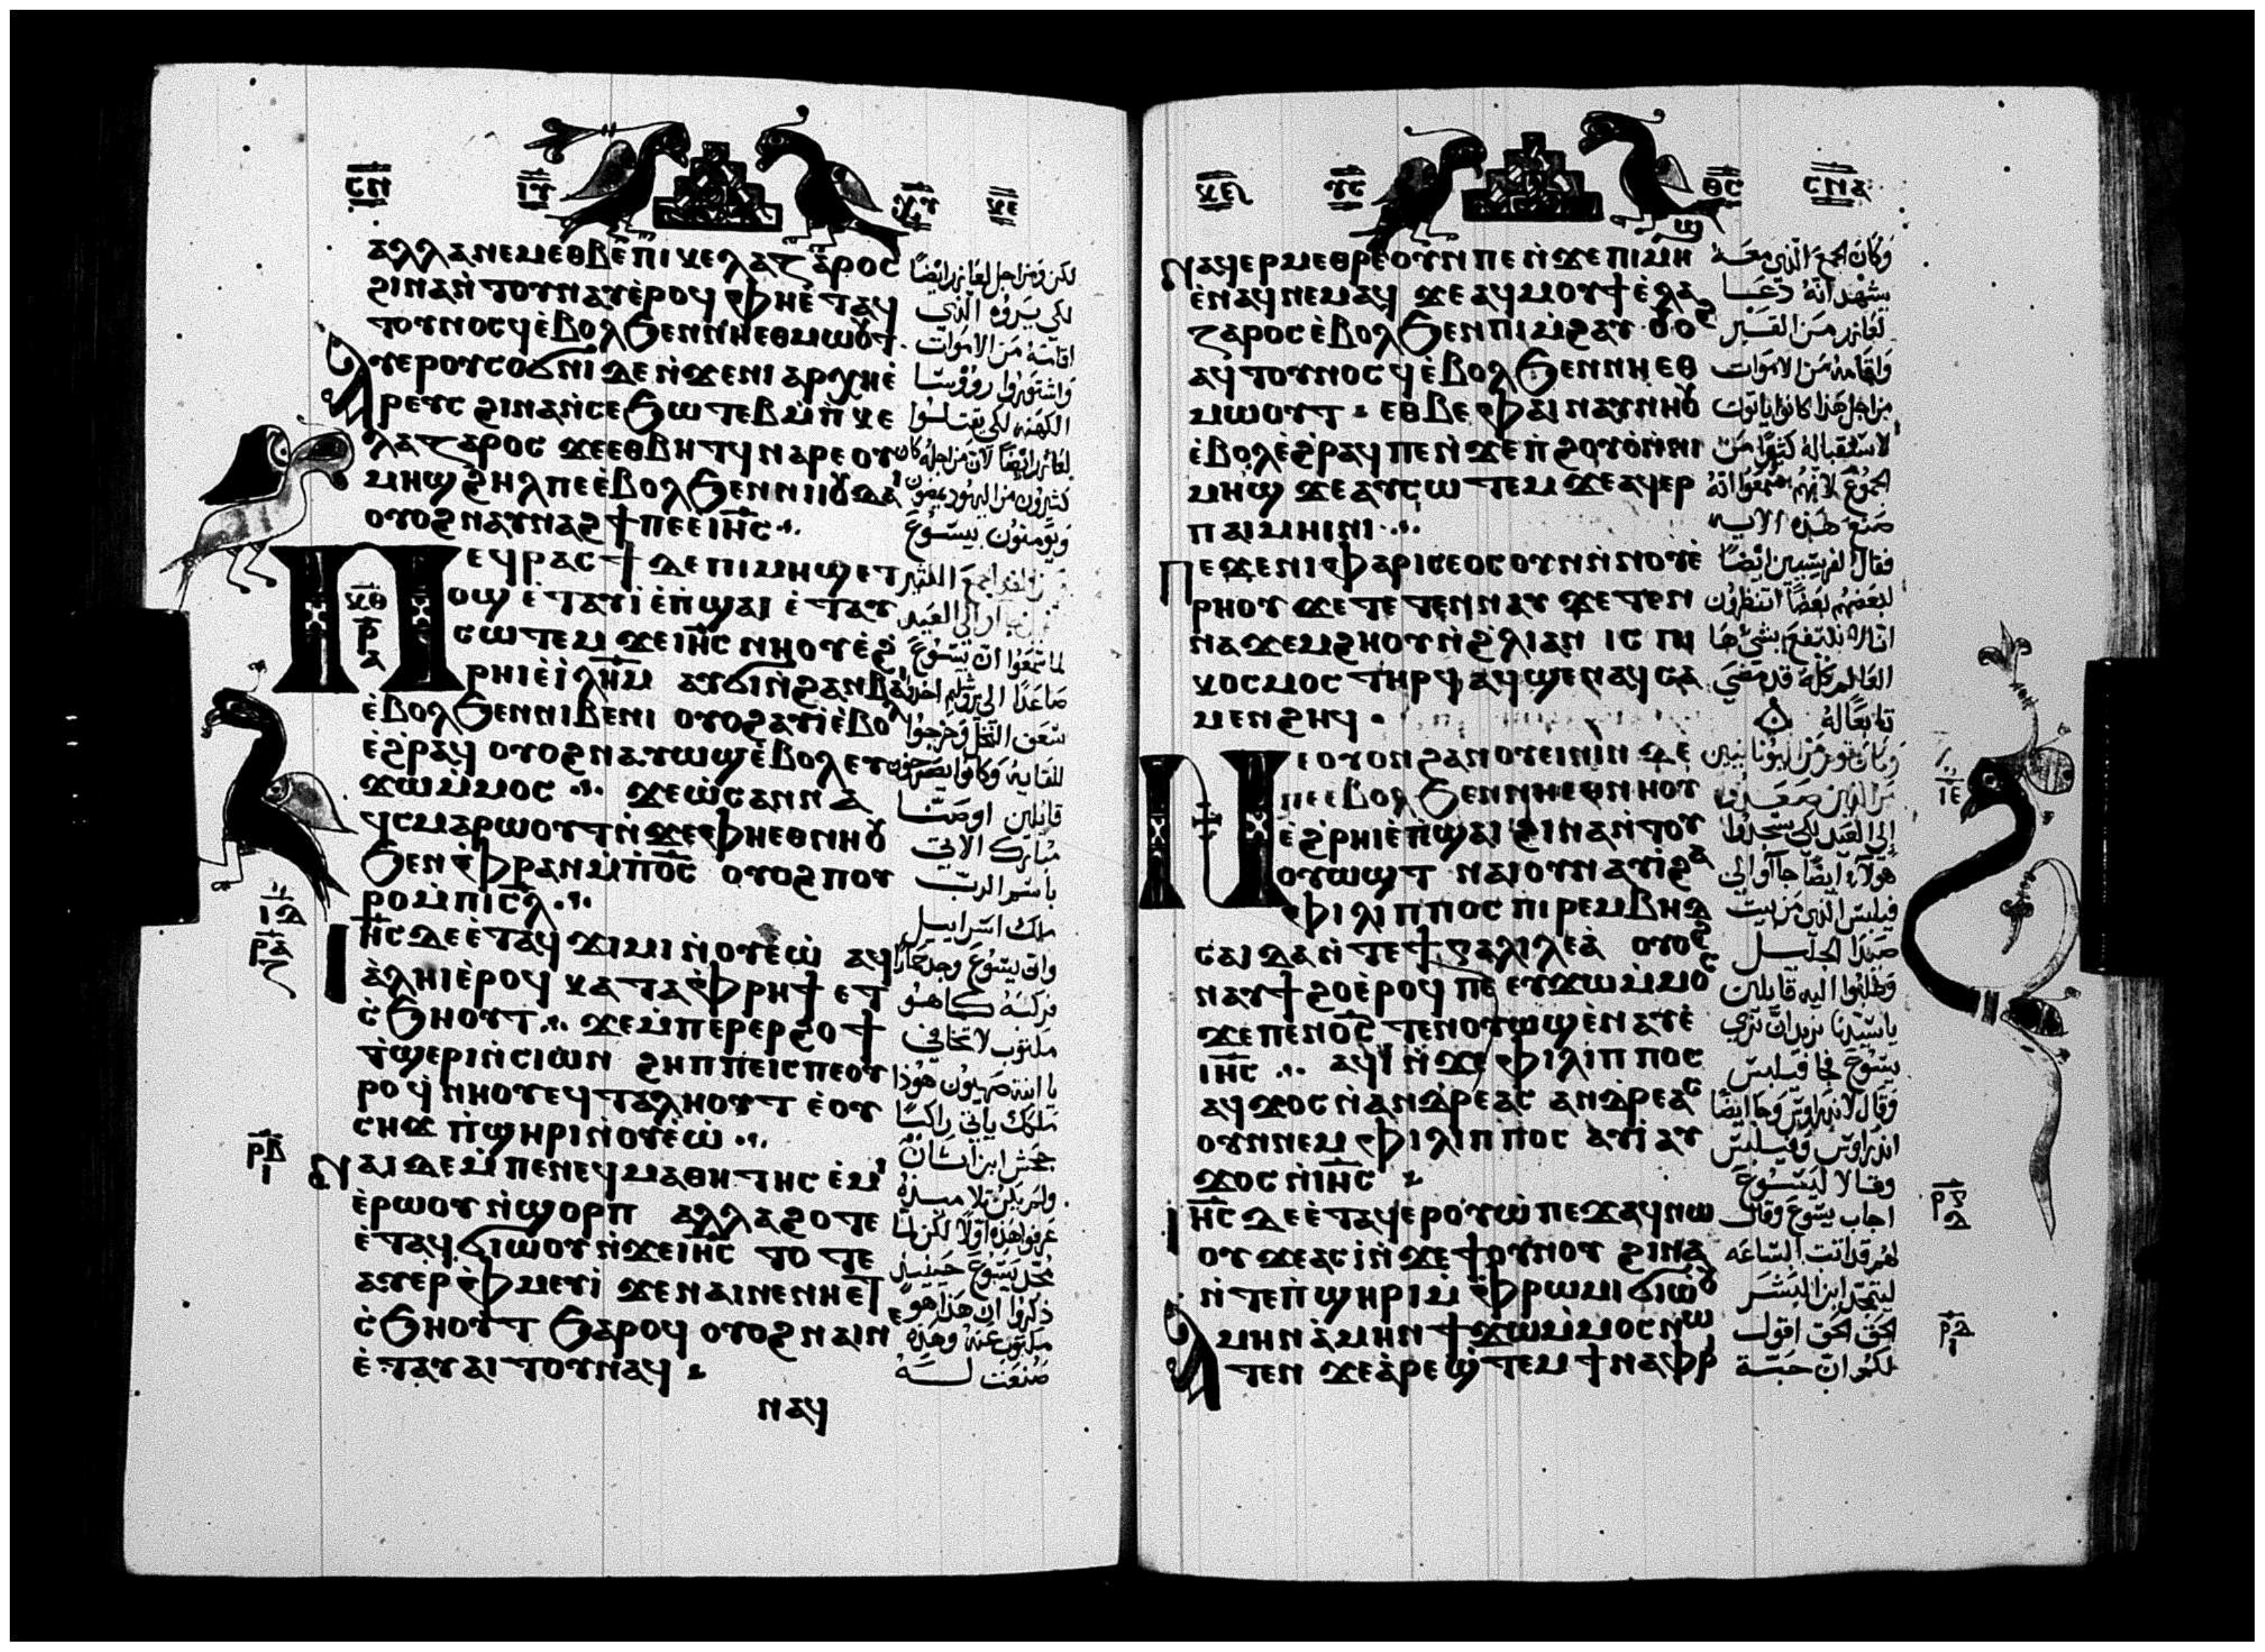 ⲥⲛ ⲓⲩ ⲭⲩ ⲕⲉ
ⲁⲗⲗⲁⲛⲉⲙⲉⲑⲃⲉⲡⲓⲕⲉⲗⲁⲍⲁⲣⲟⲥ
ϩⲓⲛⲁⲛ̀ⲧⲟⲩⲛⲁⲩⲉ̀ⲣⲟϥ ⲫⲏⲉ̀ⲧⲁϥ
ⲧⲟⲩⲛⲟⲥϥⲉ̀ⲃⲟⲗϧⲉⲛⲛⲏⲉⲑⲙⲱⲟⲩⲧ
ⲁⲩⲉⲣⲟⲩⲥⲟϭⲛⲓ ⲇⲉ ⲛ̀ϫⲉⲛⲓ ⲁⲣⲭⲏⲉ̀
ⲣⲉⲩⲥ ϩⲓⲛⲁⲛ̀ⲥⲉϧⲱⲧⲉⲃⲙ̀ⲡⲕⲉ
ⲗⲁⲍⲁⲣⲟⲥ ϫⲉⲉⲑⲃⲏⲧϥ ⲛⲁⲣⲉ ⲟⲩ
ⲙⲏϣ ϩⲏⲗⲡⲉⲉ̀ⲃⲟⲗϧⲉⲛⲛⲓⲓⲟⲩⲇⲁⲓ
ⲟⲩⲟϩⲛⲁⲩⲛⲁϩϯⲡⲉⲉ̀ⲓⲏ̅ⲥ
ⲡⲉϥⲣⲁⲥϯ ⲇⲉ ⲡⲓⲙⲏϣ ⲉⲧ
ⲟϣ ⲉ̀ⲧⲁⲩⲓ̀ ⲉ̀ⲡ̀ϣⲁⲓ ⲉ̀ⲧⲁⲩ
ⲥⲱⲧⲉⲙ ϫⲉⲓⲏ̅ⲥ ⲛⲏⲟⲩⲉ̀ϩ̀
ⲣⲏⲓⲉ̀ⲓ̀ⲗⲏ̅ⲙ ⲁⲩϭⲓⲛ̀ϩⲁⲛⲃⲁⲓ
ⲉ̀ⲃⲟⲗϧⲉⲛⲛⲓⲃⲉⲛⲓ ⲟⲩⲟϩⲁⲩⲓ̀ⲉ̀ⲃⲟⲗ
ⲉ̀ϩ̀ⲣⲁϥ ⲟⲩⲟϩⲛⲁⲩⲱϣⲉ̀ⲃⲟⲗⲉⲩ
ϫⲱⲙ̀ⲙⲟⲥ ϫⲉⲱ̀ⲥⲁⲛⲛⲁ
ϥⲥⲙⲁⲣⲱⲟⲩⲧⲛ̀ϫⲉⲫⲏⲉⲑⲛⲏⲟⲩ
ϧⲉⲛⲫ̀ⲣⲁⲛⲙ̀ⲡ̀ⲟ̅ⲥ ⲟⲩⲟϩⲡⲟⲩ
ⲣⲟⲙ̀ⲡⲓⲥ̅ⲗ
ⲓⲏ̅ⲥⲇⲉⲉ̀ⲧⲁϥ ϫⲓⲙⲓ ⲛ̀ⲟⲩⲉ̀ⲱ̀ ⲁϥ
ⲁ̀ⲗⲏⲓⲉ̀ⲣⲟϥ ⲕⲁⲧⲁⲫ̀ⲣⲏϯ ⲉⲧ
ⲥ̀ϧⲏⲟⲩⲧ ϫⲉⲙ̀ⲡⲉⲣⲉⲣϩⲟϯ
ⲧ̀ϣⲉⲣⲓⲛ̀ⲥⲓⲱⲛ ϩⲏⲡⲡⲉⲓⲥⲡⲉⲟⲩ
ⲣⲟ ϥ̀ⲛⲏⲟⲩⲉϥⲧⲁⲗⲏⲟⲩⲧ ⲉ̀ⲟⲩ
ⲥⲏϫ ⲡ̀ϣⲏⲣⲓⲛ̀ⲟⲩⲉ̀ⲱ̀
ⲛⲁⲓ ⲇⲉⲙ̀ⲡⲉⲛⲉϥⲙⲁⲑⲏⲧⲏⲥ ⲉ̀ⲙⲓ
ⲉ̀ⲣⲱⲟⲩ ⲛ̀ϣⲟⲣⲡ ⲁⲗⲗⲁϩⲟⲧⲉ
ⲉ̀ⲧⲁϥϭⲓⲱⲟⲩⲛ̀ϫⲉⲓⲏ̅ⲥ ⲧⲟⲧⲉ
ⲁⲩⲉⲣⲫ̀ⲙⲉⲩⲓ̀ ϫⲉⲛⲁⲓⲛⲉⲛⲏⲉⲧ
ⲥ̀ϧⲏⲟⲩⲧ ϧⲁⲣⲟϥ ⲟⲩⲟϩⲛⲁⲓⲛⲉ
ⲉ̀ⲧⲁⲩⲁⲓⲧⲟⲩⲛⲁϥ
ⲛⲁϥ
ⲕⲑ ⲣ ⲁ
ⲓⲇ
ⲣⲁ ⲍ
ⲣⲃ ⲓ
لكن ومن اجل لعازر ايضًا
لكي يروه الذي
اقامه من الاموات
واشتوروا روؤسا
الكهنه لكي يقتلوا
لعازر ايضًا لان من اجله كان
كثيرون من اليهود يمضون
ويومنون بيسوع
لما سمعوا ان يسوع
صاعدًا الى يروشليم اخذوا
سعف النخل وخرجوا
للقايه وكانوا يصرخون
قايلين اوصنا
مبارك الاتي
باسم الرب
ملك اسراييل
وان يسوع وجد حمارًا
فركبه كما هو
مكتوب لا تخافي
يا ابنة صهيون هوذا
ملكك ياتي راكبًا
جحش ابن اتان
ولم يكن تلاميذه
عرفوا هذه اولًا لكن لما
مجد يسوع حينيذ
ذكروا ان هذا هو
مكتوب عنه وهذه
صنعت له
ⲩⲥ ⲑⲥ ⲥⲛⲁ
ⲛⲁϥⲉⲣⲙⲉⲑⲣⲉⲟⲩⲛ ⲡⲉ ⲛ̀ϫⲉ ⲡⲓⲙⲏϣ
ⲉ̀ⲛⲁϥⲛⲉⲙⲁϥ ϫⲉⲁϥⲙⲟⲩϯⲉ̀ⲗⲁ
ⲍⲁⲣⲟⲥⲉ̀ⲃⲟⲗϧⲉⲛⲡⲓⲙ̀ϩⲁⲩ ⲟⲩⲟϩ
ⲁϥⲧⲟⲩⲛⲟⲥϥⲉ̀ⲃⲟⲗϧⲉⲛⲛⲏⲉⲑ
ⲙⲱⲟⲩⲧ ⲉⲑⲃⲉⲫⲁⲓ ⲛⲁⲩⲛⲏⲟⲩ
ⲉ̀ⲃⲟⲗⲉ̀ϩ̀ⲣⲁϥ ⲡⲉⲛ̀ϫⲉⲡ̀ϩⲟⲩⲟ̀ⲛ̀ⲛⲓ
ⲙⲏϣ ϫⲉⲁⲩⲥⲱⲧⲉⲙ ϫⲉⲁϥⲉⲣ
ⲡⲁⲓⲙⲏⲓⲛⲓ
ⲡⲉϫⲉⲛⲓⲫⲁⲣⲓⲥⲉⲟⲥⲟⲩⲛⲛ̀ⲛⲟⲩⲉ̀
ⲣⲏⲟⲩ ϫⲉⲧⲉⲧⲉⲛⲛⲁⲩ ϫⲉⲧⲉⲛ
ⲛⲁϫⲉⲙϩⲏⲟⲩⲛ̀ϩ̀ⲗⲓⲁⲛ ⲓⲥ ⲡⲓ
ⲕⲟⲥⲙⲟⲥ ⲧⲏⲣϥ ⲁϥϣⲉⲛⲁϥⲥⲁ
ⲙⲉⲛϩⲏϥ
ⲛⲉⲟⲩⲟⲛ ϩⲁⲛⲟⲩⲉⲓⲛⲓⲛ ⲇⲉ
ⲡⲉⲉ̀ⲃⲟⲗ ϧⲉⲛⲛⲏⲉⲑⲛⲏⲟⲩ
ⲉ̀ϩ̀ⲣⲏⲓⲉ̀ⲡ̀ϣⲁⲓ ϩⲓⲛⲁⲛ̀ⲧⲟⲩ
ⲟⲩⲱϣⲧ ⲛⲁⲓⲟⲩⲛⲁⲩⲓ̀ϩⲁ
ⲫⲓⲗⲓⲡⲡⲟⲥ ⲡⲓⲣⲉⲙⲃⲏⲇ
ⲥⲁⲓⲇⲁⲛ̀ⲧⲉϯⲅⲁⲗⲓⲗⲉⲁ̀ ⲟⲩⲟϩ
ⲛⲁⲩϯϩⲟⲉ̀ⲣⲟϥ ⲡⲉ ⲉⲩϫⲱⲙ̀ⲙⲟⲥ
ϫⲉⲡⲉⲛⲟ̅ⲥ ⲧⲉⲛⲟⲩⲱϣⲉ̀ⲛⲁⲩⲉ̀
ⲓⲏ̅ⲥ ⲁϥⲓ̀ ⲛ̀ϫⲉ ⲫⲓⲗⲓⲡⲡⲟⲥ
ⲁϥϫⲟⲥ ⲛ̀ⲁⲛⲇⲣⲉⲁⲥ ⲁⲛⲇⲣⲉⲁⲥ
ⲟⲩⲛⲛⲉⲙ ⲫⲓⲗⲓⲡⲡⲟⲥ ⲁⲩⲓ̀ ⲁⲩ
ϫⲟⲥ ⲛ̀ⲓⲏ̅ⲥ
ⲓⲏ̅ⲥ ⲇⲉⲉ̀ⲧⲁϥⲉⲣⲟⲩⲱ̀ ⲡⲉϫⲁϥⲛⲱ
ⲟⲩ ϫⲉⲁⲥⲓ̀ⲛ̀ϫⲉϯⲟⲩⲛⲟⲩ ϩⲓⲛⲁ
ⲛ̀ⲧⲉⲡ̀ϣⲏⲣⲓⲙ̀ⲫ̀ⲣⲱⲙⲓϭⲓⲱ̀ⲟⲩ
ⲁⲙⲏⲛ ⲁ̀ⲙⲏⲛ ϯϫⲱⲙ̀ⲙⲟⲥⲛⲱ
ⲧⲉⲛ ϫⲉⲁ̀ⲣⲉϣ̀ⲧⲉⲙ ϯⲛⲁⲫⲣ
وكان الجمع الذي معه
يشهد انه دعا
لعازر من القبر
واقامه من الاموات
من اجل هذا كانوا ياتون
لاستقباله كثيرًا من
الجموع لانهم سمعوا انه
صنع هذه الايه
فقال الفريسيين ايضًا
لبعضهم بعضًا اتنظرون
العالم كله قد مضى
تابعًا له
وكان قوم من اليونانيين
من الذين صعدوا
الى العيد لكي يسجدوا
هولاء ايضًا جآوا الى
فيلبس الذي من بيت
صيدا الجليل
وطلبوا اليه قايلين
يا سيدنا نريد ان نرى
يسوع فجا فيلبس
وقال لاندراوس وجا ايضًا
اندراوس وفيلبس
وقالا ليسوع
اجاب يسوع وقال
لهم قد اتت الساعه
ليتمجد ابن البشر
الحق الحق اقول
لكم ان حبة
ⲓⲉ
ⲣⲅ ⲇ
ⲣⲇ ⲓ